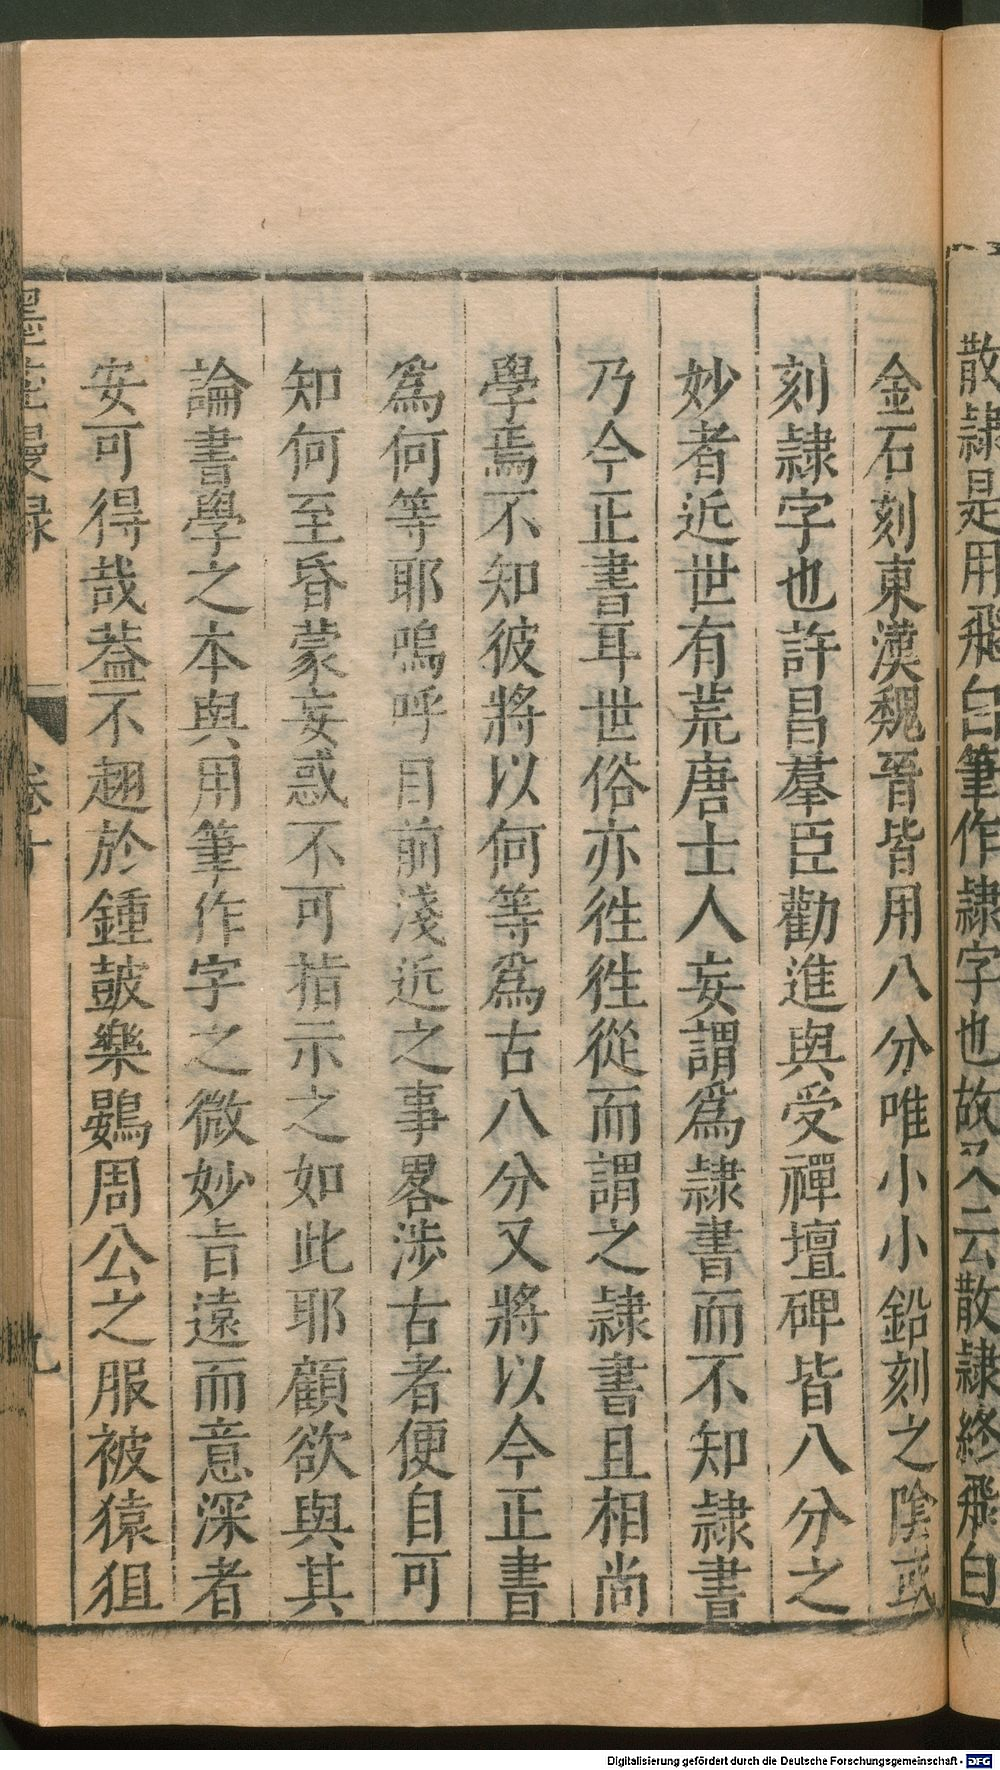 散隷是用飛白筆作隷字也故又云散隷終飛白
金石刻東漢魏晉皆用八分唯小小鉛刻之陰或
刻隷字也許昌羣臣勸進與受禪壇碑皆八分之
妙者近世有荒唐士人妄謂爲隷書而不知隷書
乃今正書耳世俗亦徃徃從而謂之隷書且相尚
學焉不知彼將以何等爲古八分又將以今正書
爲何等耶嗚呼目前淺近之事畧涉古者便自可
知何至昏蒙妄惑不可指示之如此耶顧欲與其
論書學之本與用筆作字之微妙旨遠而意深者
安可得哉葢不趐於鍾鼓樂鷃周公之服被猿狙
墨莊漫録 卷十 九
Digitalisierung gefördert durch die Deutsche Forschungsgemeinschaft - DFG